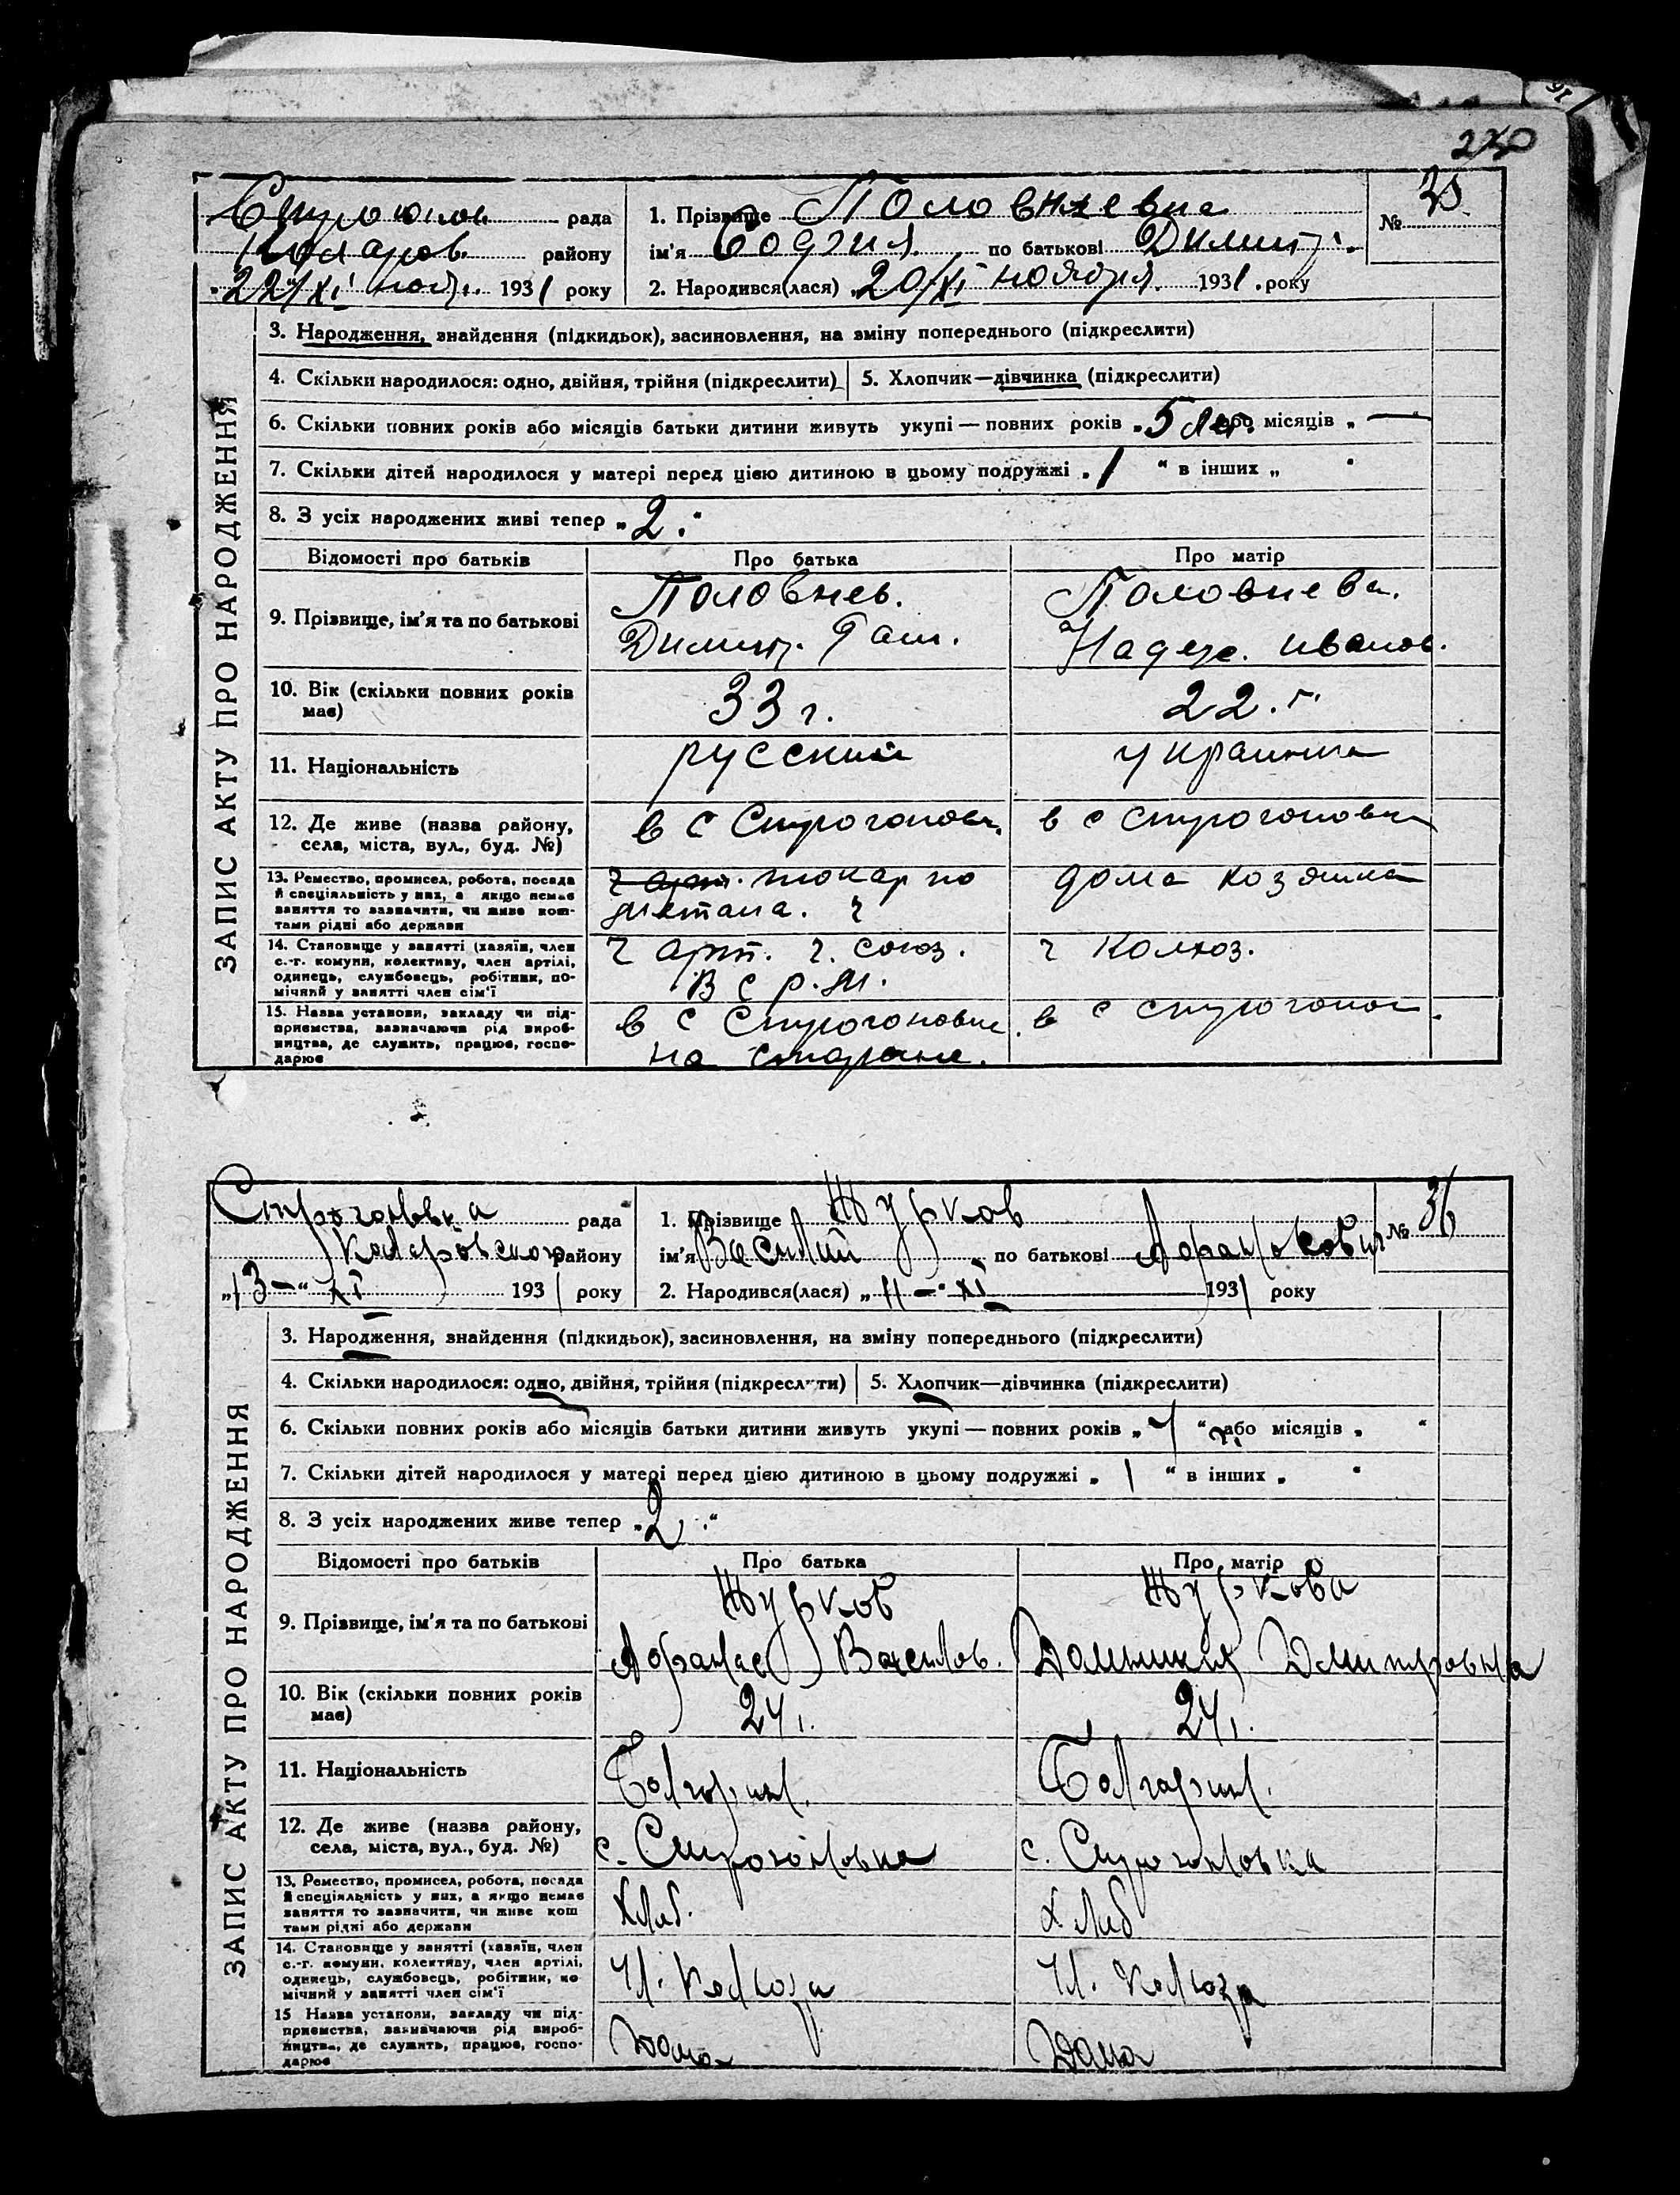 230
рада
району
"22/XI" 1931 року
1. Прізвище Половнева
ім'я по батькові Димитр.
2. Народився(лася) "20/XI ноября 1931. року
№ 35
ЗАПИС АКТУ ПРО НАРОДЖЕННЯ
3. Народження, знайдення (підкидьок), засиновлення, на зміну попереднього (підкреслити)
4. Скільки народилося: одно, двійня, трійня (підкреслити) 5. Хлопчик—дівчинка (підкреслити)
6. Скільки повних років або місяців батьки дитини живуть укупі — повних років „5 лет. або місяців „ — "
7. Скільки дітей народилося у матері перед цією дитиною в цьому подружжі „1 " в інших „ "
8. З усіх народжених живі тепер „2."
Відомості про батьків Про батька Про матір
9. Прізвище, ім'я та по батькові
Половнев. Половнева.
Димитр. Надеж. иванов.
10. Вік (скільки повних років має) 33 г. 22. г.
11. Національність русский украинка
12. Де живе (назва району, села, міста, вул., буд. №) в с Строгоновк. в с Строгоновка
13. Ремество, промисел, робота, посада й спеціяльність у них, а якщо немає заняття то зазначити, чи живе коштами рідні або держави
токар по дома
метала. ч
14. Становище у занятті (хазяїн, член с.-г. комуни, колективу, член артілі, одинець, службовець, робітник, помічний у занятті член сім'ї
ч арт. ч. союз. ч Колхоз.
В С Р. М.
15. Назва установи, закладу чи підприємства, зазначаючи рід виробництва, де служить, працює, господарює
в с Строгоновке в с Строгонов.
на
Строгоновка рада
Коларовского району
„13—" XI 1931 року
1. Прізвище Журков
ім'я Василий по батькові
2. Народився(лася) „11—" XI 1931 року
№ 36
ЗАПИС АКТУ ПРО НАРОДЖЕННЯ
3. Народження, знайдення (підкидьок), засиновлення, на зміну попереднього (підкреслити)
4. Скільки народилося: одно, двійня, трійня (підкреслити) 5. Хлопчик—дівчинка (підкреслити)
6. Скільки повних років або місяців батьки дитини живуть укупі — повних років „4 " або місяців „ "
7. Скільки дітей народилося у матері перед цією дитиною в цьому подружжі „1 " в інших „ "
8. З усіх народжених живе тепер „2."
Відомості про батьків Про батька Про матір
9. Прізвище, ім'я та по батькові
Журков Журкова
Афанас Васелов. Домникия Дмитровна
10. Вік (скільки повних років має) 24 г. 24 г.
11. Національність Болгарин. Болгарин.
12. Де живе (назва району, села, міста, вул., буд. №) с. Строгоновка с. Строгоновка
13. Ремество, промисел, робота, посада й спеціяльність у них, а якщо немає заняття то зазначити, чи живе коштами рідні або держави Хлиб. Хлиб
14. Становище у занятті (хазяїн, член с.-г. комуни, колективу, член артілі, одинець, службовець, робітник, помічний у занятті член сім'ї Чл. Колхоза Чл. Колхоза
15 Назва установи, закладу чи підприємства, зазначаючи рід виробництва, де служить, працює, господарює Дома Дома